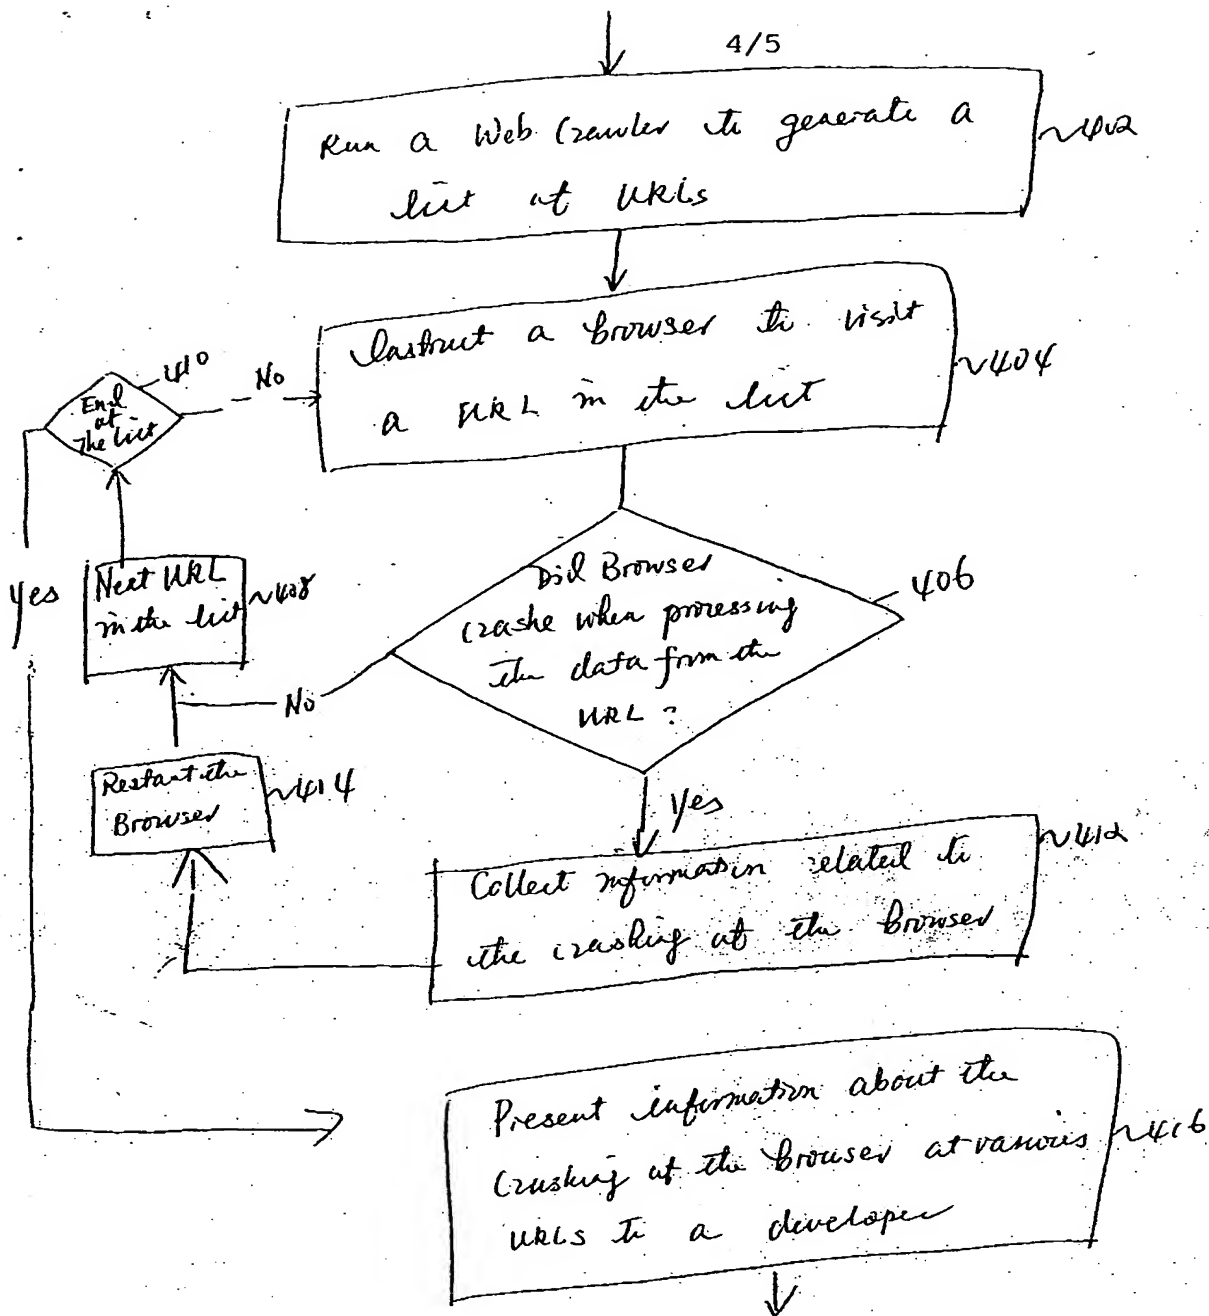 4/5
Run a Web Crawler to generate a
list of URLs
~402
Instruct a browser to visit
a URL in the list
~404
410
No
End
of
The list
Did Browser
crashe when processing
the data from the
URL?
406
Yes
Next URL
in the list
~408
No
Restart the
Browser
~414
Yes
Collect information related to
the crashing of the browser
~412
Present information about the
crashing of the browser at various
URLs to a developer
~416